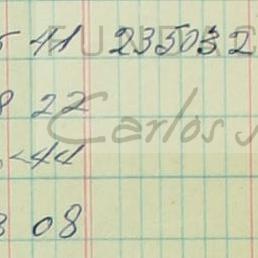 5 41 235032
8 22
44
3 08
FUNDAC
Carlos